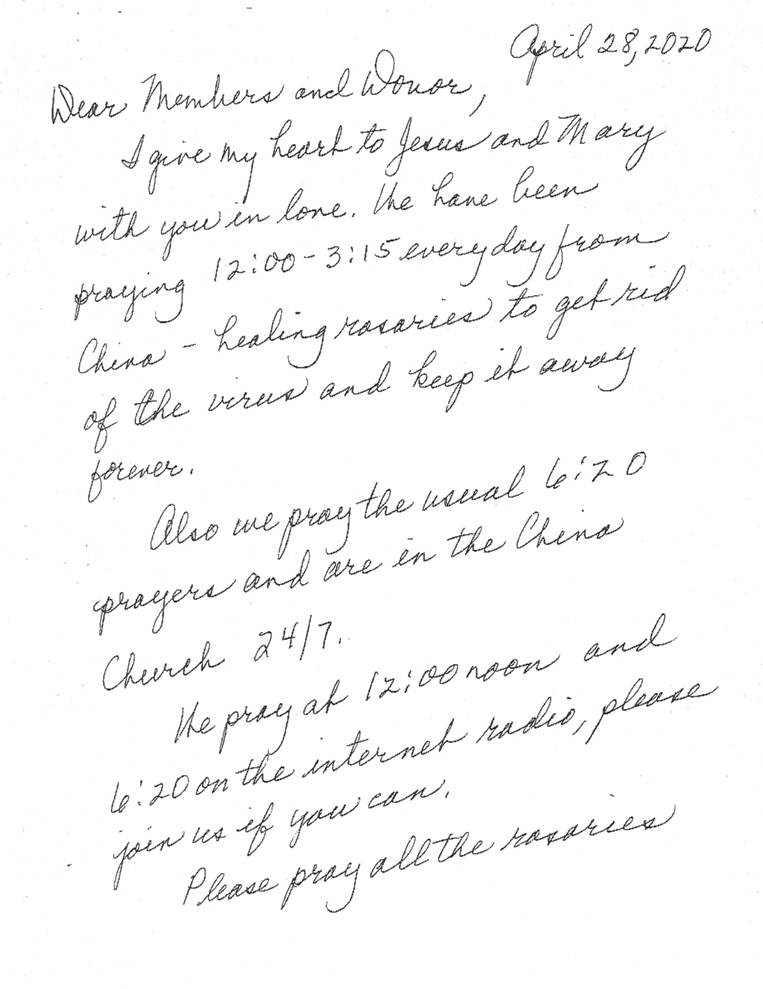 April 28, 2020
Dear Members and Donor,
I give my heart to Jesus and Mary
with you in love. We have been
praying 12:00-3:15 everyday from
China - healing rosaries to get rid
of the virus and keep it away
forever.
Also we pray the usual 6:20
prayers and are in the China
Church 24/7.
We pray at 12:00 noon and
6:20 on the internet radio, please
join us if you can.
Please pray all the rosaries